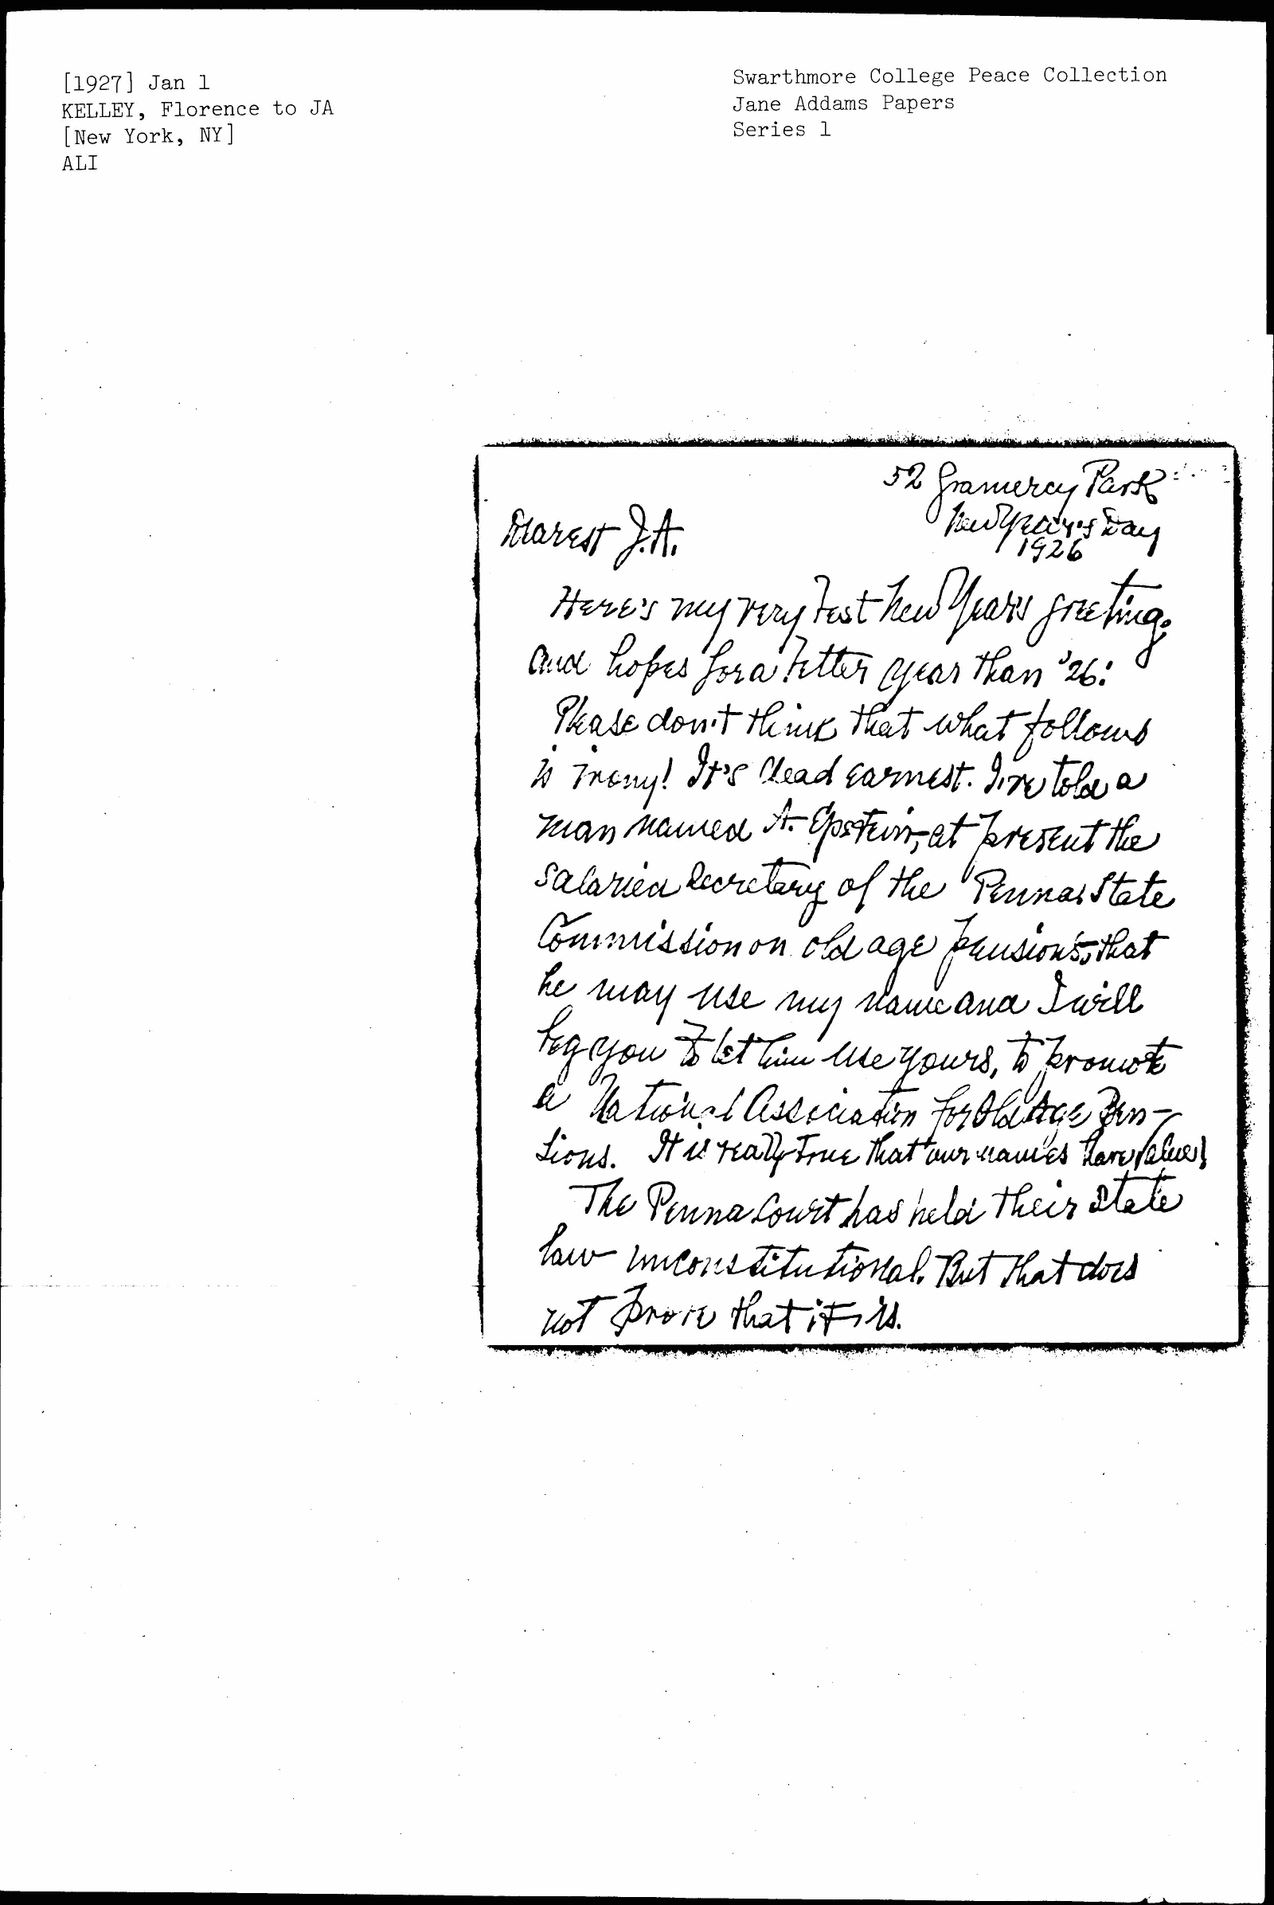 [1927] Jan 1
KELLEY, Florence to JA
[New York, NY]
ALI
Swarthmore College Peace Collection
Jane Addams Papers
Series 1
52 Gramercy Park
New Year's Day
1926
Dearest J.A.
Here's my very best New Year's greeting,
and hopes for a better year than '26!
Please don't think that what follows
is irony! It's dead earnest. I've told a
man named A. Epstein, at present the
salaried secretary of the Penna. State
Commission on old age pensions, that
he may use my name and I will
beg you to let him use yours, to promote
a National Association for Old Age Pen-
sions. It is really true that our names have value!
The Penna Court has held their State
law unconstitutional. But that does
not prove that it is.